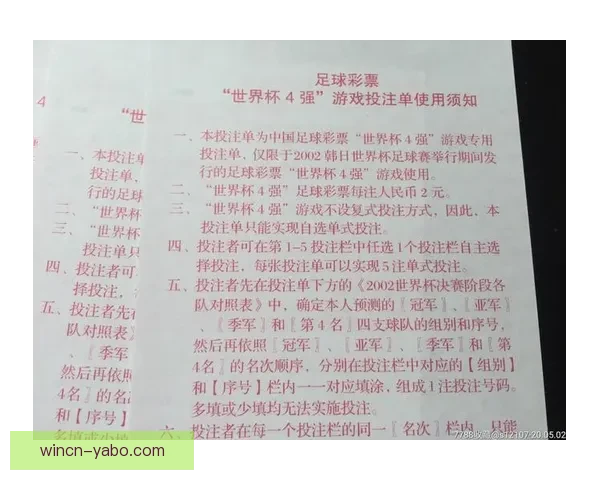 足球彩票
“世界杯 4 强”游戏投注单使用须知
一、本投注单为中国足球彩票“世界杯 4 强”游戏专用
投注单，仅限于2002 韩日世界杯足球赛举行期间发
行的足球彩票“世界杯 4 强”游戏使用。
二、“世界杯 4 强”足球彩票每注人民币 2 元。
三、“世界杯 4 强”游戏不设复式投注方式，因此，本
投注单只能实现自选单式投注。
四、投注者可在第 1-5 投注栏中任选 1个投注栏自主选
择投注，每张投注单可以实现 5 注单式投注。
五、投注者先在投注单下方的《2002世界杯决赛阶段各
队对照表》中，确定本人预测的〖冠军〗、〖亚军〗
、〖季军〗和〖第 4 名〗四支球队的组别和序号，
然后再依照〖冠军〗、〖亚军〗、〖季军〗和〖第
4名〗的名次顺序，分别在投注栏中对应的【组别】
和【序号】栏内一一对应填涂，组成 1 注投注号码。
多填或少填均无法实施投注。
六、投注者在每一个投注栏的同一〖名次〗栏内，只能
4
“世
一、本投注单
投注单，
行的足球
二、“世界杯
三、“世界杯
投注单只
四、投注者可
择投注，
五、投注者先在
队对照表》
、〖季军
然后再依照
4名〗的名
和【序号】
多填或少填
7788收藏
20.05.02
wincn-yabo.com